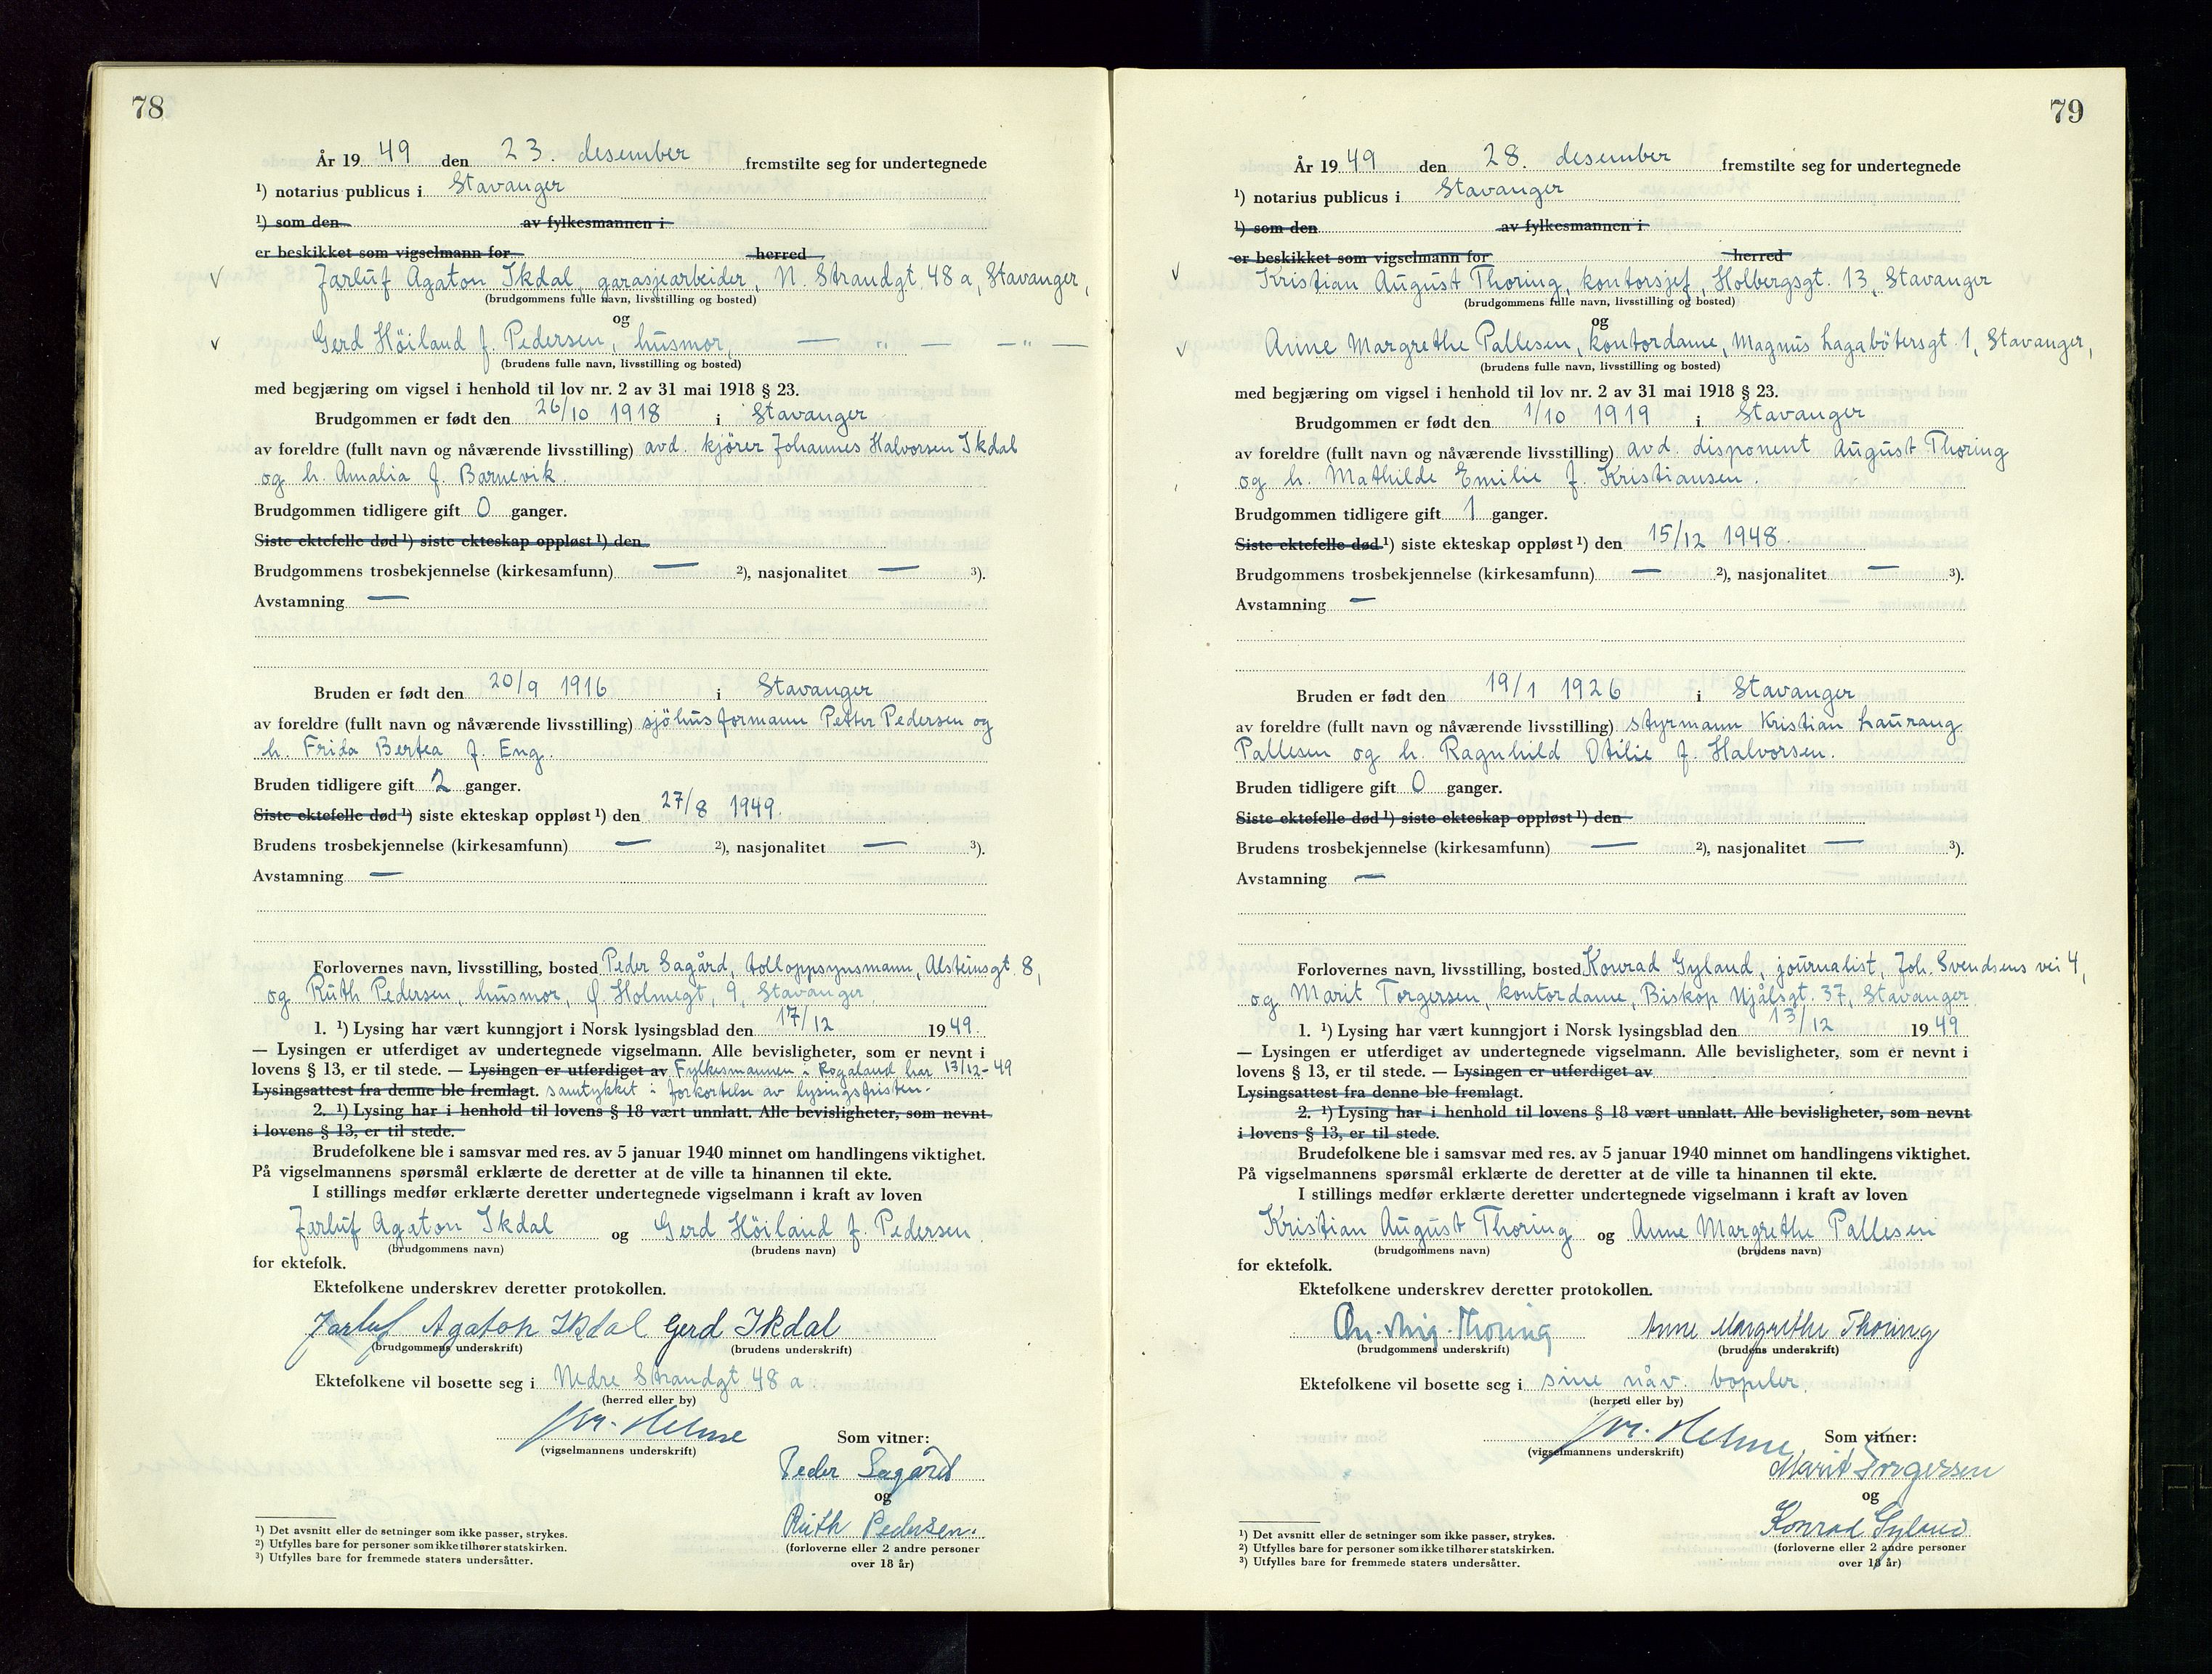 78
År 19 49 den 23. desember fremstilte seg for undertegnede
¹) notarius publicus i Stavanger
¹) som den av fylkesmannen i
er beskikket som vigselmann for herred
Jarluf Agaton Ikdal, garasjearbeider, N. Strandgt. 48 a, Stavanger,
(brudgommens fulle navn, livsstilling og bosted)
og
Gerd Höiland f. Pedersen, husmor, — " — — " —
(brudens fulle navn, livsstilling og bosted)
med begjæring om vigsel i henhold til lov nr. 2 av 31 mai 1918 § 23.
Brudgommen er født den 26/10 1918 i Stavanger
av foreldre (fullt navn og nåværende livsstilling) avd. kjörer Johannes Halvorsen Ikdal
og h. Amalia f. Barnevik.
Brudgommen tidligere gift 0 ganger.
Siste ektefelle død ¹) siste ekteskap oppløst ¹) den
Brudgommens trosbekjennelse (kirkesamfunn) — ²), nasjonalitet — ³).
Avstamning —
Bruden er født den 20/9 1916 i Stavanger
av foreldre (fullt navn og nåværende livsstilling) sjöhusformann Petter Pedersen og
h. Frida Bertea f. Eng.
Bruden tidligere gift 2 ganger.
Siste ektefelle død ¹) siste ekteskap oppløst ¹) den 27/8 1949.
Brudens trosbekjennelse (kirkesamfunn) — ²), nasjonalitet — ³).
Avstamning —
Forlovernes navn, livsstilling, bosted Peder Sagård, tolloppsynsmann, Alsteinsgt. 8,
og Ruth Pedersen, husmor, Ø. Holmegt. 9, Stavanger.
1. ¹) Lysing har vært kunngjort i Norsk lysingsblad den 17/12 1949.
— Lysingen er utferdiget av undertegnede vigselmann. Alle bevisligheter, som er nevnt i
lovens § 13, er til stede. — Lysingen er utferdiget av Fylkesmannen i Rogaland har 13/12-49
Lysingsattest fra denne ble fremlagt. samtykket i forkortelse av lysingsfristen.
2. ¹) Lysing har i henhold til lovens § 18 vært unnlatt. Alle bevisligheter, som nevnt
i lovens § 13, er til stede.
Brudefolkene ble i samsvar med res. av 5 januar 1940 minnet om handlingens viktighet.
På vigselmannens spørsmål erklærte de deretter at de ville ta hinannen til ekte.
I stillings medfør erklærte deretter undertegnede vigselmann i kraft av loven
Jarluf Agaton Ikdal og Gerd Höiland f. Pedersen
(brudgommens navn) (brudens navn)
for ektefolk.
Ektefolkene underskrev deretter protokollen.
Jarluf Agaton Ikdal Gerd Ikdal
(brudgommens underskrift) (brudens underskrift)
Ektefolkene vil bosette seg i Nedre Strandgt 48 a.
(herred eller by)
Helme
(vigselmannens underskrift)
Som vitner:
Peder Sagård
og
Ruth Pedersen.
(forloverne eller 2 andre personer
over 18 år)
¹) Det avsnitt eller de setninger som ikke passer, strykes.
²) Utfylles bare for personer som ikke tilhører statskirken.
³) Utfylles bare for fremmede staters undersåtter.
79
År 19 49 den 28. desember fremstilte seg for undertegnede
¹) notarius publicus i Stavanger
¹) som den av fylkesmannen i
er beskikket som vigselmann for herred
Kristian August Thoring, kontorsjef, Holbergsgt. 13, Stavanger
(brudgommens fulle navn, livsstilling og bosted)
og
Anne Margrethe Pallesen, kontordame, Magnus Lagabötersgt. 1, Stavanger,
(brudens fulle navn, livsstilling og bosted)
med begjæring om vigsel i henhold til lov nr. 2 av 31 mai 1918 § 23.
Brudgommen er født den 1/10 1919 i Stavanger
av foreldre (fullt navn og nåværende livsstilling) avd. disponent August Thoring
og h. Mathilde Emilie f. Kristiansen.
Brudgommen tidligere gift 1 ganger.
Siste ektefelle død ¹) siste ekteskap oppløst ¹) den 15/12 1948.
Brudgommens trosbekjennelse (kirkesamfunn) — ²), nasjonalitet — ³).
Avstamning —
Bruden er født den 19/1 1926 i Stavanger
av foreldre (fullt navn og nåværende livsstilling) styrmann Kristian Laurang
Pallesen og h. Ragnhild Otilie f. Halvorsen.
Bruden tidligere gift 0 ganger.
Siste ektefelle død ¹) siste ekteskap oppløst ¹) den
Brudens trosbekjennelse (kirkesamfunn) — ²), nasjonalitet — ³).
Avstamning —
Forlovernes navn, livsstilling, bosted Konrad Gyland, journalist, Joh. Svendsens vei 4,
og Marit Torgersen, kontordame, Biskop Njålsgt. 37, Stavanger.
1. ¹) Lysing har vært kunngjort i Norsk lysingsblad den 13/12 1949
— Lysingen er utferdiget av undertegnede vigselmann. Alle bevisligheter, som er nevnt i
lovens § 13, er til stede. — Lysingen er utferdiget av
Lysingsattest fra denne ble fremlagt.
2. ¹) Lysing har i henhold til lovens § 18 vært unnlatt. Alle bevisligheter, som nevnt
i lovens § 13, er til stede.
Brudefolkene ble i samsvar med res. av 5 januar 1940 minnet om handlingens viktighet.
På vigselmannens spørsmål erklærte de deretter at de ville ta hinannen til ekte.
I stillings medfør erklærte deretter undertegnede vigselmann i kraft av loven
Kristian August Thoring og Anne Margrethe Pallesen
(brudgommens navn) (brudens navn)
for ektefolk.
Ektefolkene underskrev deretter protokollen.
Thoring Anne Margrethe Thoring
(brudgommens underskrift) (brudens underskrift)
Ektefolkene vil bosette seg i sine nåv. bopeler.
(herred eller by)
Helme
(vigselmannens underskrift)
Som vitner:
Marit Torgersen
og
Konrad Gyland
(forloverne eller 2 andre personer
over 18 år)
¹) Det avsnitt eller de setninger som ikke passer, strykes.
²) Utfylles bare for personer som ikke tilhører statskirken.
³) Utfylles bare for fremmede staters undersåtter.